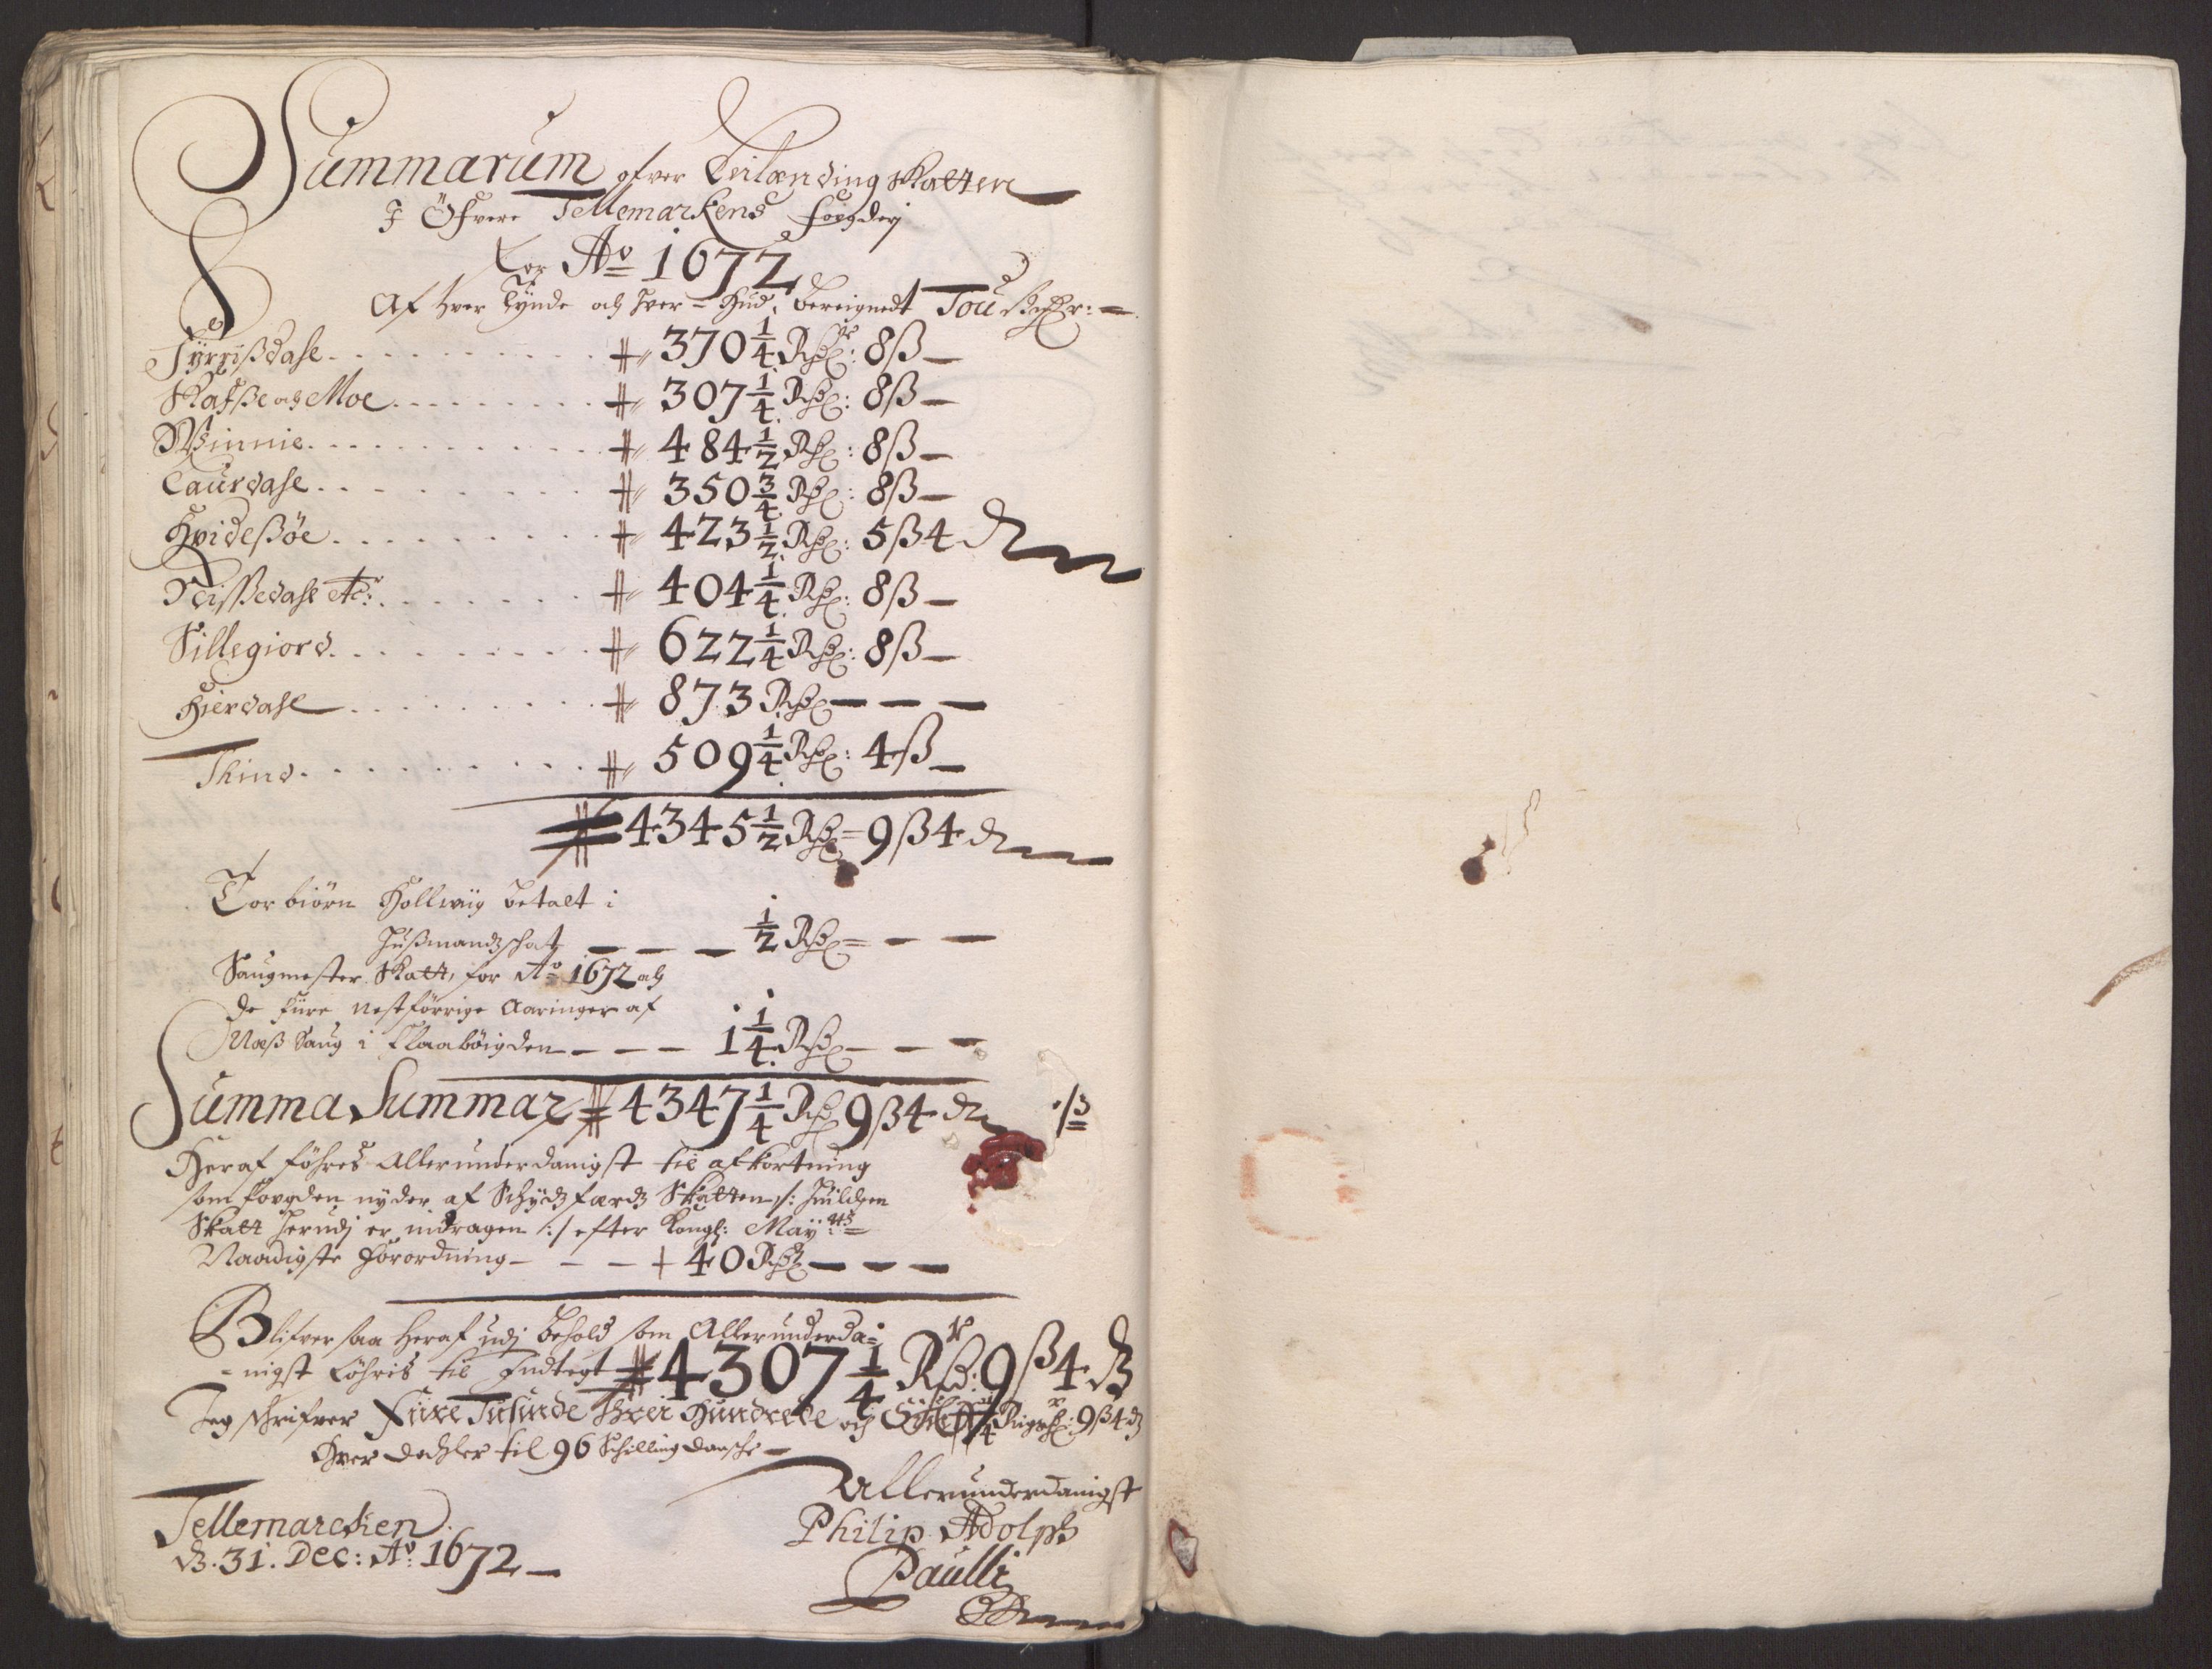 Summarum ofver Leilænding Skatten
J Öfvere Tellemarkens Fougderj
For Aō 1672
Af hver Tynde och hver Hud, bereignedt Tou
Tyrrißdahl # 370 1/4 Rdr: 8ß
Skafße och Moe # 307 1/4 Rd: 8ß
Winnie # 484 1/2 Rd: 8ß
Laurdahl # 350 3/4 Rd: 8ß
Hvideßöe # 423 1/2 Rd: 5ß 4 d
Neißedahl etc: # 404 1/4 Rd: 8ß
Sillegiord # 622 1/4 Rd: 8ß
Hierdahl # 873 Rd
Thind # 509 1/4 Rd: 4ß
# 4345 1/2 Rd = 9ß 4 d
Torbiörn Hollwiig betalt i
Hußmandschat 1/2 Rd
Saugmester Skatt, for Aō 1672 och
de fiire nestförrige Aaringer af
Næß Saug i Flaabøigden 1 1/4 Rd
Summa Summar # 4347 1/4 Rd 9ß 4 d
Heraf föhres Allerunderdanigst til afkortning
som fougden nyder af Schydzferdz Skatten /: huilchen
Skatt herudj er inddragen :/ efter Kongl: Mayts
Naadigste Forordning + 40 Rd
Blifver saa heraf udj behold som Allerunderda-
-nigst föhris til Indtegt # 4307 1/4 Rdr: 9ß 4 d
Jeg schrifver Fiire Tusinde Trei Hundrede och 1/4 Rigsdr: 9ß 4 d
Hver daler til 96 Schilling dansche
Allerunderdanigst
Tellemarcken
d. 31. Dec: Aō 1672
Philip Adolph
Paulli